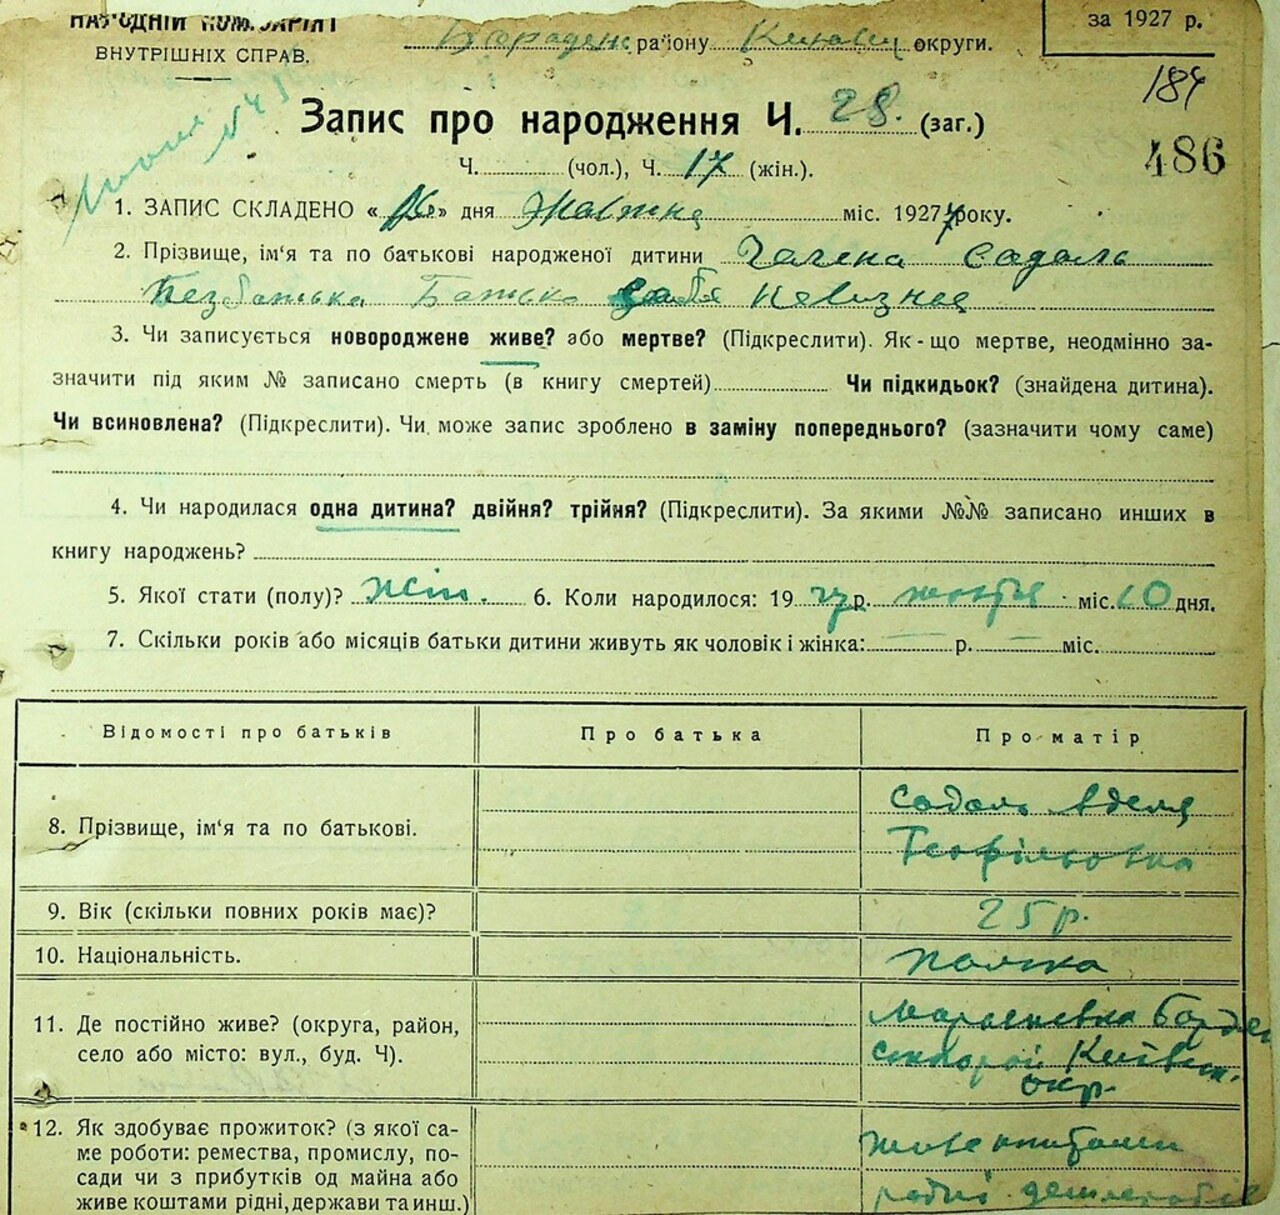 НАРОДНІЙ КОМІСАРІЯТ
ВНУТРІШНІХ СПРАВ.
району округи.
за 1927 р.
184
486
Запис про народження Ч. 28. (заг.)
Ч. (чол.), Ч. 17 (жін.).
1. ЗАПИС СКЛАДЕНО « » дня Жовтня міс. 1927 року.
2. Прізвище, ім‘я та по батькові народженої дитини Галена Садаль
Безбатька Батько Невизнав
3. Чи записується новороджене живе? або мертве? (Підкреслити). Як-що мертве, неодмінно за-
значити під яким № записано смерть (в книгу смертей) Чи підкидьок? (знайдена дитина).
Чи всиновлена? (Підкреслити). Чи може запис зроблено в заміну попереднього? (зазначити чому саме)
4. Чи народилася одна дитина? двійня? трійня? (Підкреслити). За якими №№ записано инших в
книгу народжень?
5. Якої стати (полу)? жін. 6. Коли народилося: 19 27 р. жовтня міс. 10 дня.
7. Скільки років або місяців батьки дитини живуть як чоловік і жінка: — р. — міс.
Відомості про батьків Про батька Про матір
8. Прізвище, ім‘я та по батькові. Садаль Аделя
Теофільовна
9. Вік (скільки повних років має)? 25 р.
10. Національність. полька
11. Де постійно живе? (округа, район,
село або місто: вул., буд. Ч). Київськ.
окр.
12. Як здобуває прожиток? (з якої са-
ме роботи: ремества, промислу, по-
сади чи з прибутків од майна або
живе коштами рідні, держави та инш.) живе коштами
рідні